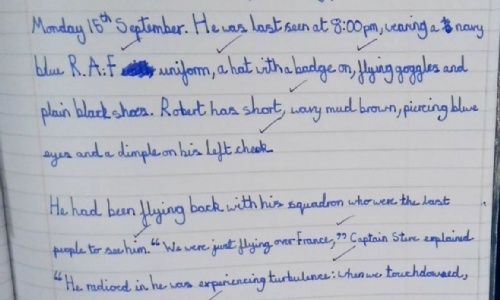 Monday 15th September. He was last seen at 8:00pm, wearing a navy
blue R.A.F uniform, a hat with a badge on, flying goggles and
plain black shoes. Robert has short, wavy mud brown, piercing blue
eyes and a dimple on his left cheek.
He had been flying back with his squadron who were the last
people to see him. "We were just flying over France," Captain Steve explained
"He radioed in he was experiencing turbulence: when we touchdowned,